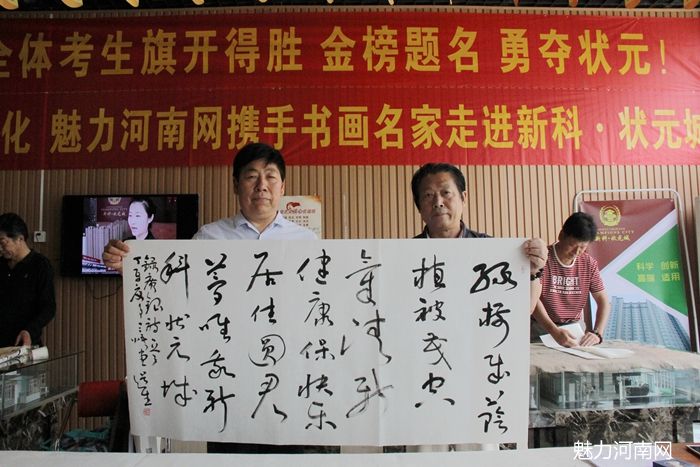 全体考生旗开得胜 金榜题名 勇夺状元!
化 魅力河南网携手书画名家走进新科·状元城
绿树成荫
植被茂空
气清新
健康保快乐
居住圆君
梦唯我新
科状元城
CHAMPIONS CITY
新科·状元城
科学 创新
适用
BRIGHT
魅力河南网